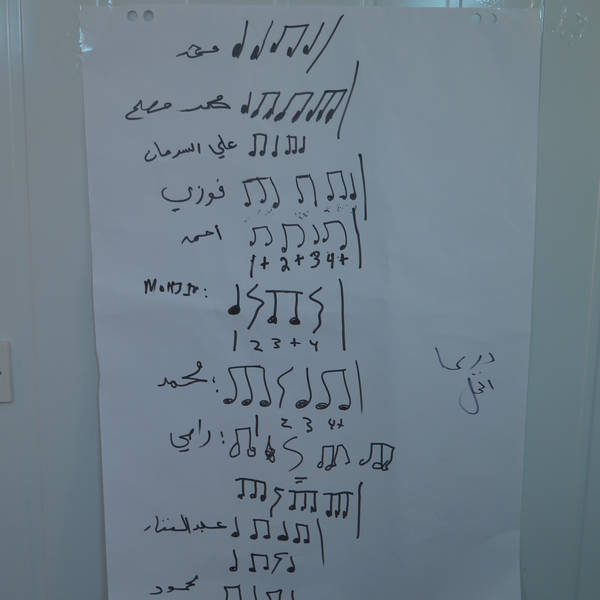 محمد مصلح
علي السرمان
فوزي
احمد
1+ 2+ 3 4+
MOHSIN:
1 2 3 + 4
محمد:
2 3 4+
رامي:
عبدالستار
محمود